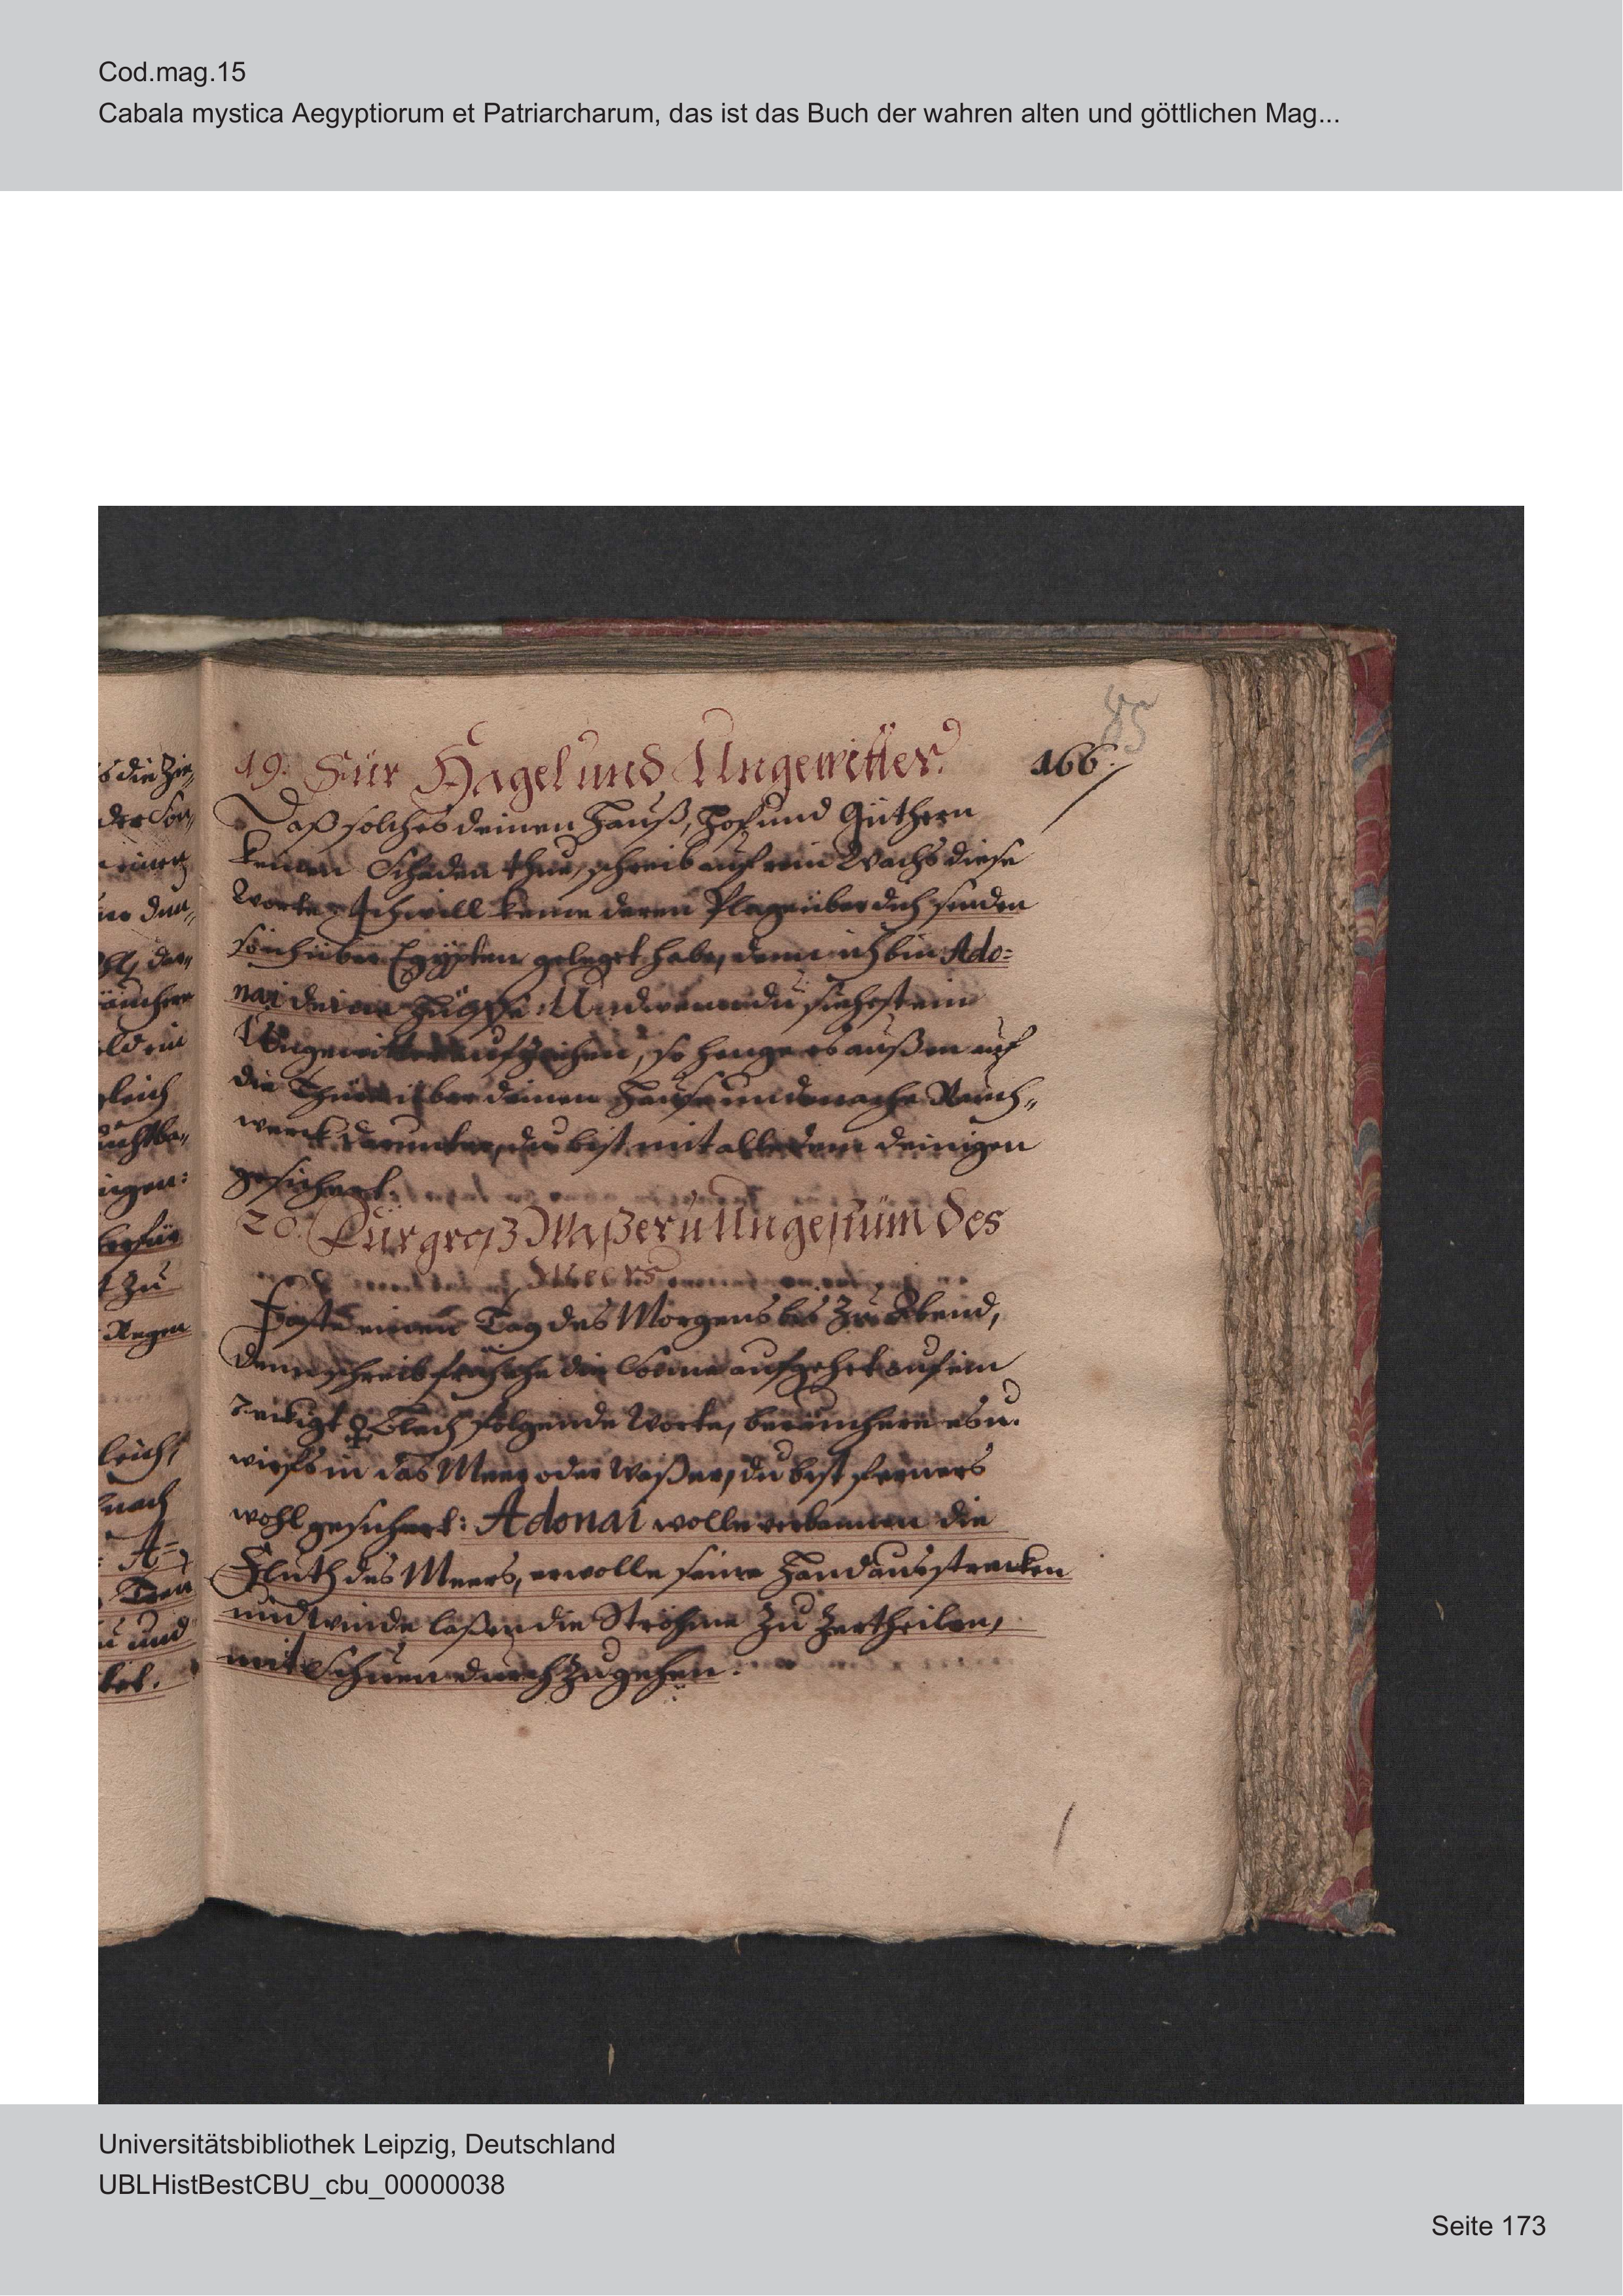 Cod.mag.15
Cabala mystica Aegyptiorum et Patriarcharum, das ist das Buch der wahren alten und göttlichen Mag...
85
19. Für Hagel und Ungewitter. 166.
Daß solches deinen Hauß, Hof und Güthern
keinen Schaden thue, schreib auf rein Wachs diese
Worte: Ich will keine deren Plagen über dich senden
so ich über Egÿpten geleget habe, denn ich bin Ado=
nai deine Und wenn du siehest ein
Ungewitter aufziehen, so hange es außen auf
die Thür über deinen Hause und mache Rauch„
werck darunter, du bist mit alle dem deinigen
gesichert.
20. Für groß Waßer u Ungestüm des
Meers
Faste einen Tag des Morgens bis zu Abend,
denn schreib früh ehe die Sonne aufgehet auf ein
7eckigt ♀ Blech folgende Worte, beräuchere es u.
wirfs in das Meer oder Waßer, du bist ferners
wohl gesichert: Adonai wolle verbannen die
Fluth des Meers, er wolle seine Hand ausstrecken
und Winde laßen die Ströhme zu zertheilen,
mit Schuen durchzugehen.
s die Zie„
der Son„
äuchere
ld ein
gleich
t zu
Regen
leich,
nach
A=
u und
Universitätsbibliothek Leipzig, Deutschland
UBLHistBestCBU_cbu_00000038
Seite 173